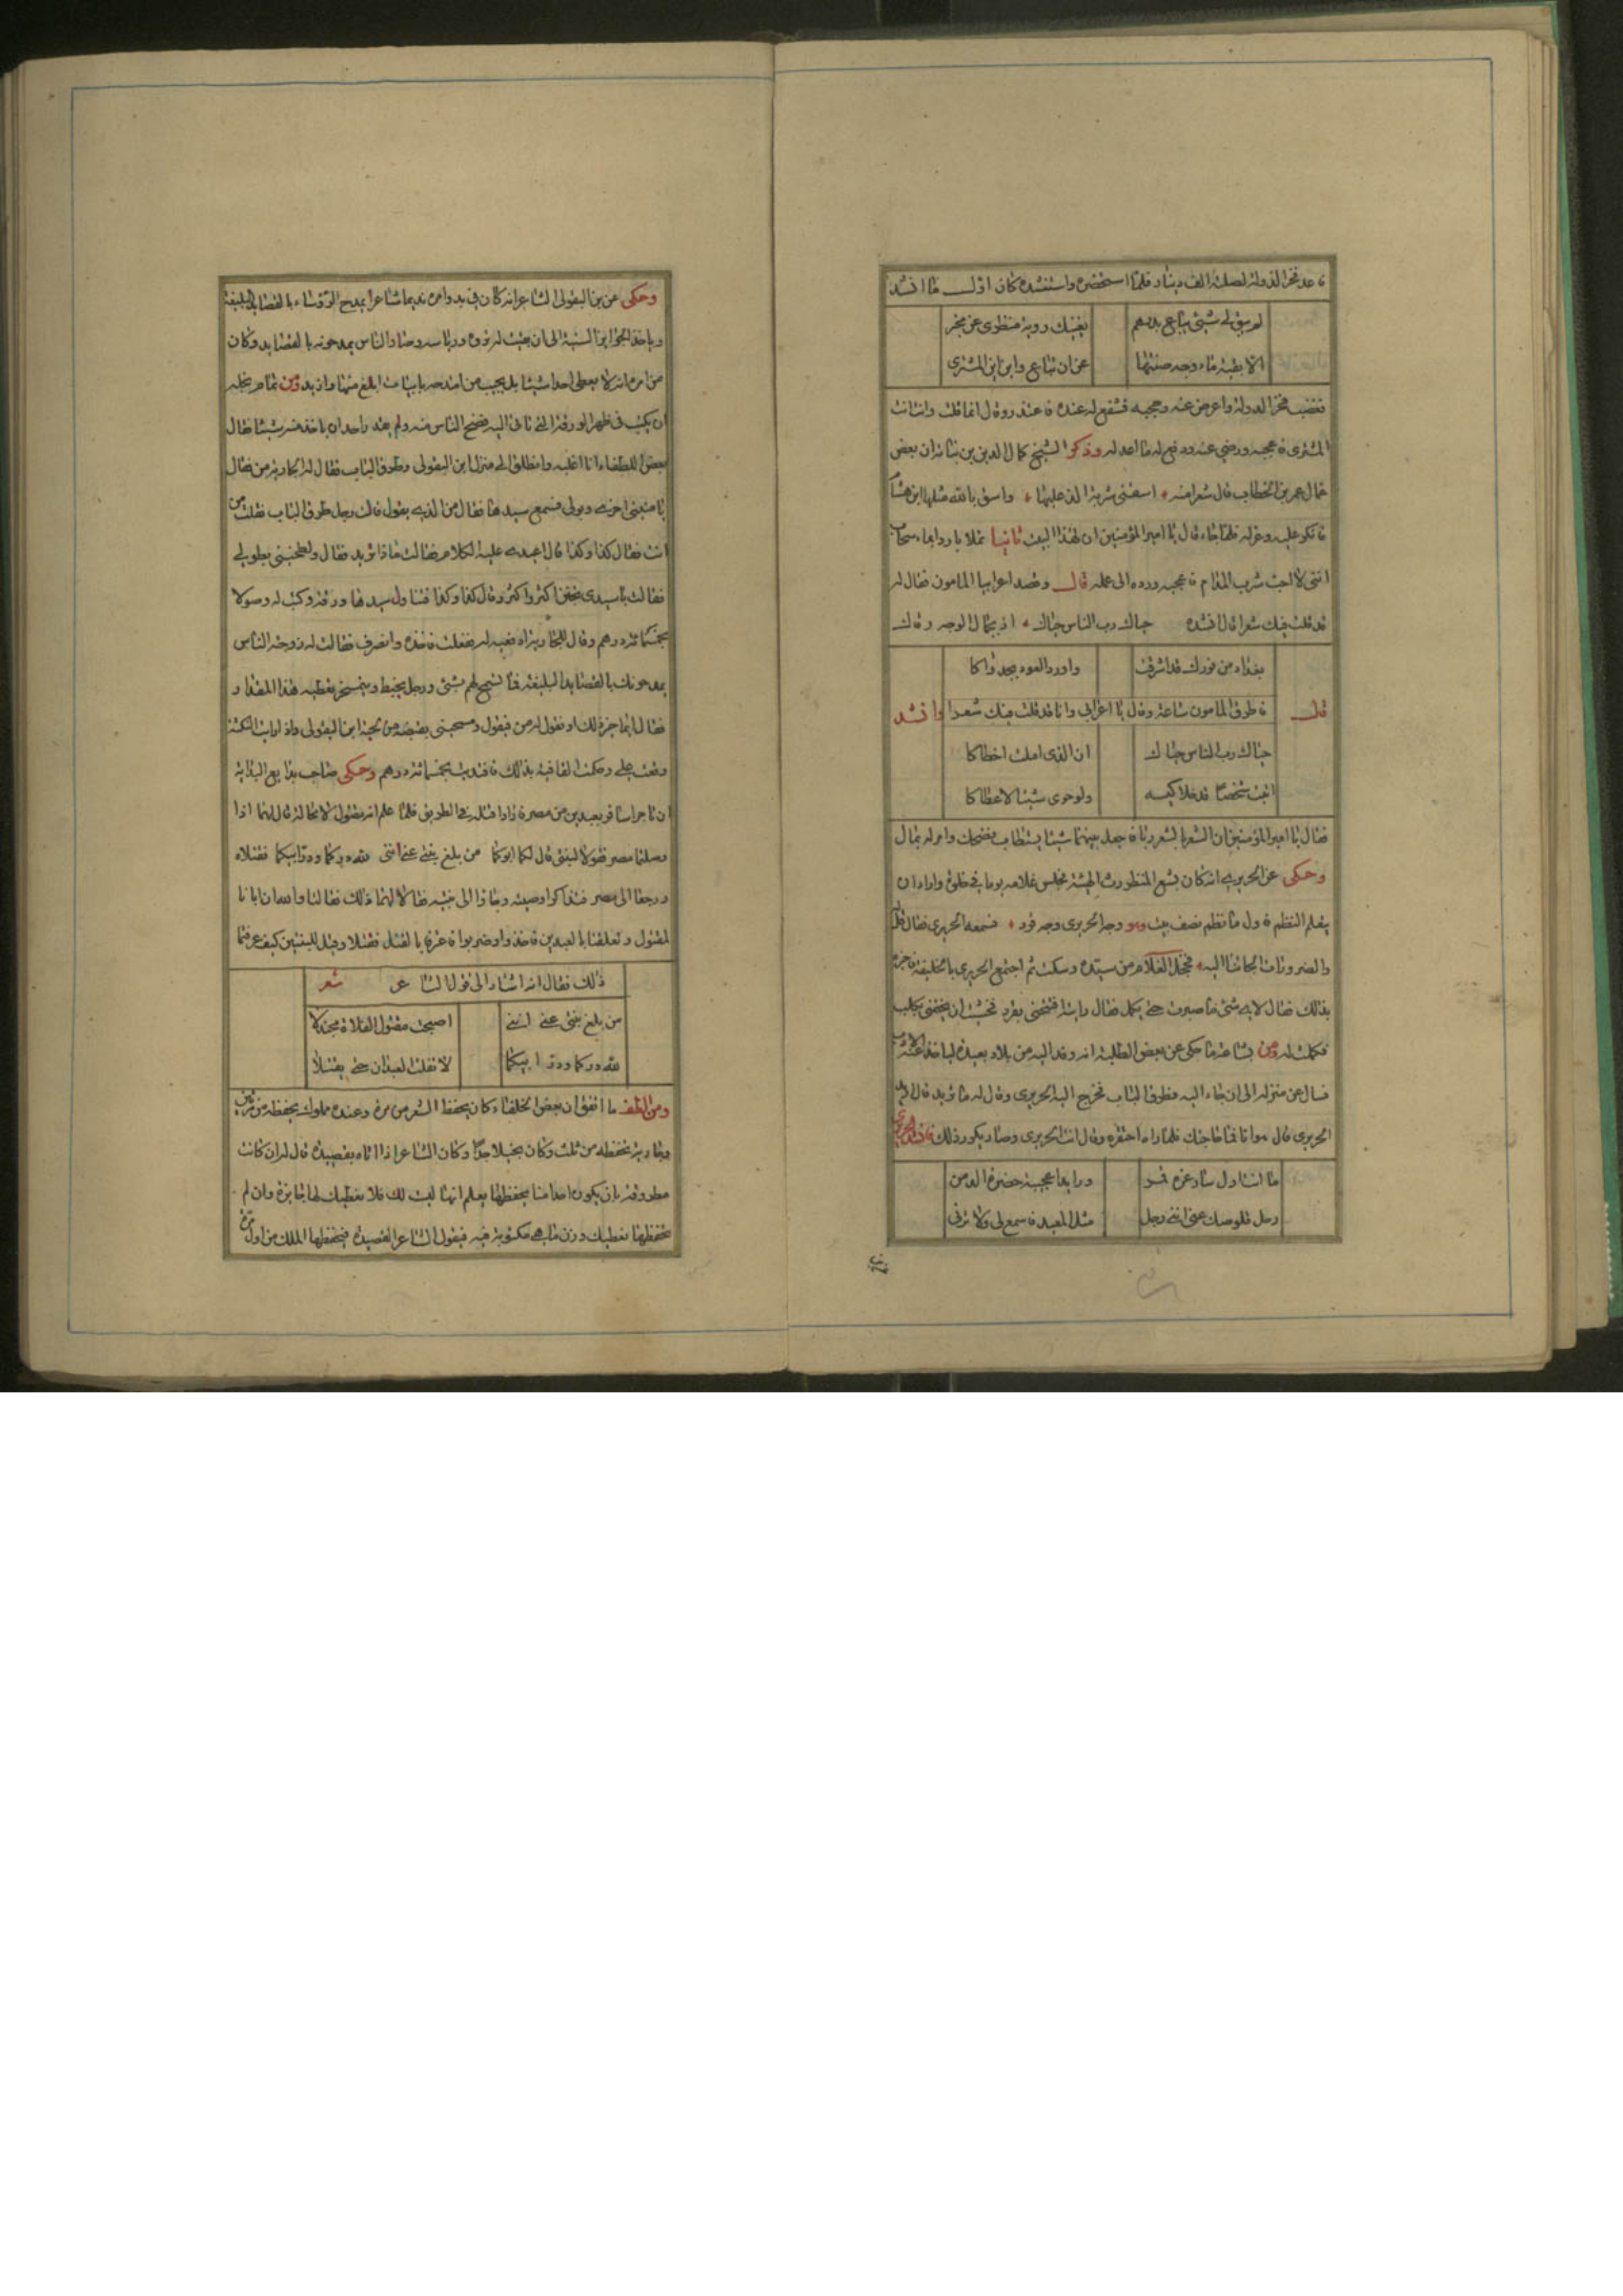 فاعد فخر الدولة لصلته الف دينار فلما استحضره واستنشده كان اول ما انشد
لم يبق لي شيئ يباع بدرهم يغنيك رؤية منظري عن مخبر
الا بقية ماء وجه صنتها عن ان تباع واين اين المشتري
فغضب فخر الدولة واعرض عنه وحجبه فشفع له عنده فاعتذر وقال انما قلت وانت انت
المشتري فاعجبه ورضي عنه ودفع له ما اعد له وذكر الشيخ كمال الدين بن نباتة ان بعض
عمال عمر بن الخطاب قال شعرا منه اسقني شربة الذ عليها واسق بالله مثلها ابن هشام
فانكر عليه وعزله فلما جاء قال يا امير المؤمنين ان لهذا البيت ثانيا عسلا باردا بماء سحاب
انني لا احب شرب المدام فاعجبه ورده الى عمله قال وقصد اعرابيا المامون فقال له
قد قلت فيك شعرا قال انشده حياك رب الناس حياك اذ بجمال الوجه
بغداد من نورك قد اشرقت واورق العود بجدواكا
قال فاطرق المامون ساعة وقال يا اعرابي وانا قد قلت فيك شعرا وانشد
حياك رب الناس حياك ان الذي املت اخطاكا
اتيت شخصا قد خلا كيسه ولو حوى شيئا لاعطاكا
فقال يا امير المؤمنين ان الشعر بالشعر ربا فاجعل بينهما شيئا يستطاب فضحك وامر له بمال
وحكى عن الحريري انه كان بشع المنظر رث الهيئة فجلس غلامه يوما في خلوة واراد ان
يتعلم النظم فاول ما نظم نصف بيت وهو وجه الحريري وجه قرد فسمعه الحريري فقال قل
والضرورات الجاتنا اليه فخجل الغلام من سيده وسكت ثم اجتمع الحريري بالخليفة فاخبره
بذلك فقال لاي شئ ما صبرت حتى يكمل فقال رايته افتتحني بقرد فخشيت ان يختمني بكلب
فكملت له ومن بشاعته ما حكي عن بعض الطلبة انه وفد اليه من بلاد بعيدة لياخذ عنه الادب
فسال عن منزله الى ان جاء اليه فطرق الباب فخرج اليه الحريري وقال له ما تريد قال اريد
الحريري قال هو انا فما حاجتك فلما راه احتقره وقال انت الحريري وصار يكرر ذلك فانشد الحريري
ما انت اول سار غره قمر ورايد اعجبته خضرة الدمن
رحل قلوصك عني انني رجل مثل المعيد فاسمع بي ولا ترني
وحكى عن بن البقولي الشاعر انه كان في بدو امره نديما شاعرا يمدح الرؤساء بالقصايد البليغة
وياخذ الجوايز السنية الى ان بعثت له ثروة ورياسة وصار الناس يمدحونه بالقصايد وكان
من امره انه لا يعطي احدا شيئا بل يجيب من امتدحه بابيات ابلغ منها وازيد ومن تمام بخله
ان يكتب في ظهر الورقة التي تاتي اليه فضج الناس منه ولم يقدر احد ان ياخذ منه شيئا فقال
بعض اللطفاء انا اغلبه وانطلق الى منزل ابن البقولي وطرق الباب فقال له الجارية من فقال
فسمع سيدها فقال من الذي يقول قالت رجل طرق الباب فقلت من
انت فقال كذا وكذا قال اعيدي عليه الكلام فقالت ماذا تريد فقال
فقالت يا سيدي كثر واكثر وقال كذا وكذا فتناول سيدها ورقة وكتب له وصولا
بخمسمائة درهم وقال للجارية فقعلت فاخذه وانصرف فقالت له زوجته الناس
يمدحونك بالقصايد البليغة فما تسمح لهم بشئ ورجل يخبط ويتمسخر يعطيه هذا المقدار
فقال
فافتديت بخمسمائة درهم وحكى صاحب بدايع البداية
ان تاجرا سافر بعبدين من مصر فارادا قتله في الطريق فلما علم انه مقتول لا محالة قال لهما اذا
وصلتما مصر فقولا لبنتي قال لكما ابوكما من بلغ بنتي عني انني لله دركما ودر ابيكما فقتلاه
ورجعا الى مصر فتذاكرا وصيته وجاءا الى بنتيه فقالا لهما ذلك فقالتا والله ان ابانا
لمقتول وتعلقتا بالعبدين فاخذوا وضربوا فاعترفا بالقتل فقتلا وقيل للبنتين كيف عرفتما
ذلك فقال انه اشار الى قول الشاعر شعر
من بلغ بنتي عني انني اصبحت مقتول الفلاة مجندلا
لله دركما ودر ابيكما لا تفلت العبدان حتى يقتلا
ومن الطف ما اتفق ان بعض الخلفاء كان يحفظ الشعر من مرة وعنده مملوك يحفظه من مرتين
وجارية تحفظه من ثلث وكان بخيلا جدا وكان الشاعر اذا اتاه بقصيدة قال له ان كانت
مطروقة بان يكون احد منا يحفظها يعلم انها ليست لك فلا نعطيك لها جايزة وان لم
نحفظها نعطيك وزن ما هي مكتوبة فيه فيقول الشاعر القصيدة فيحفظها الملك من اول مرة